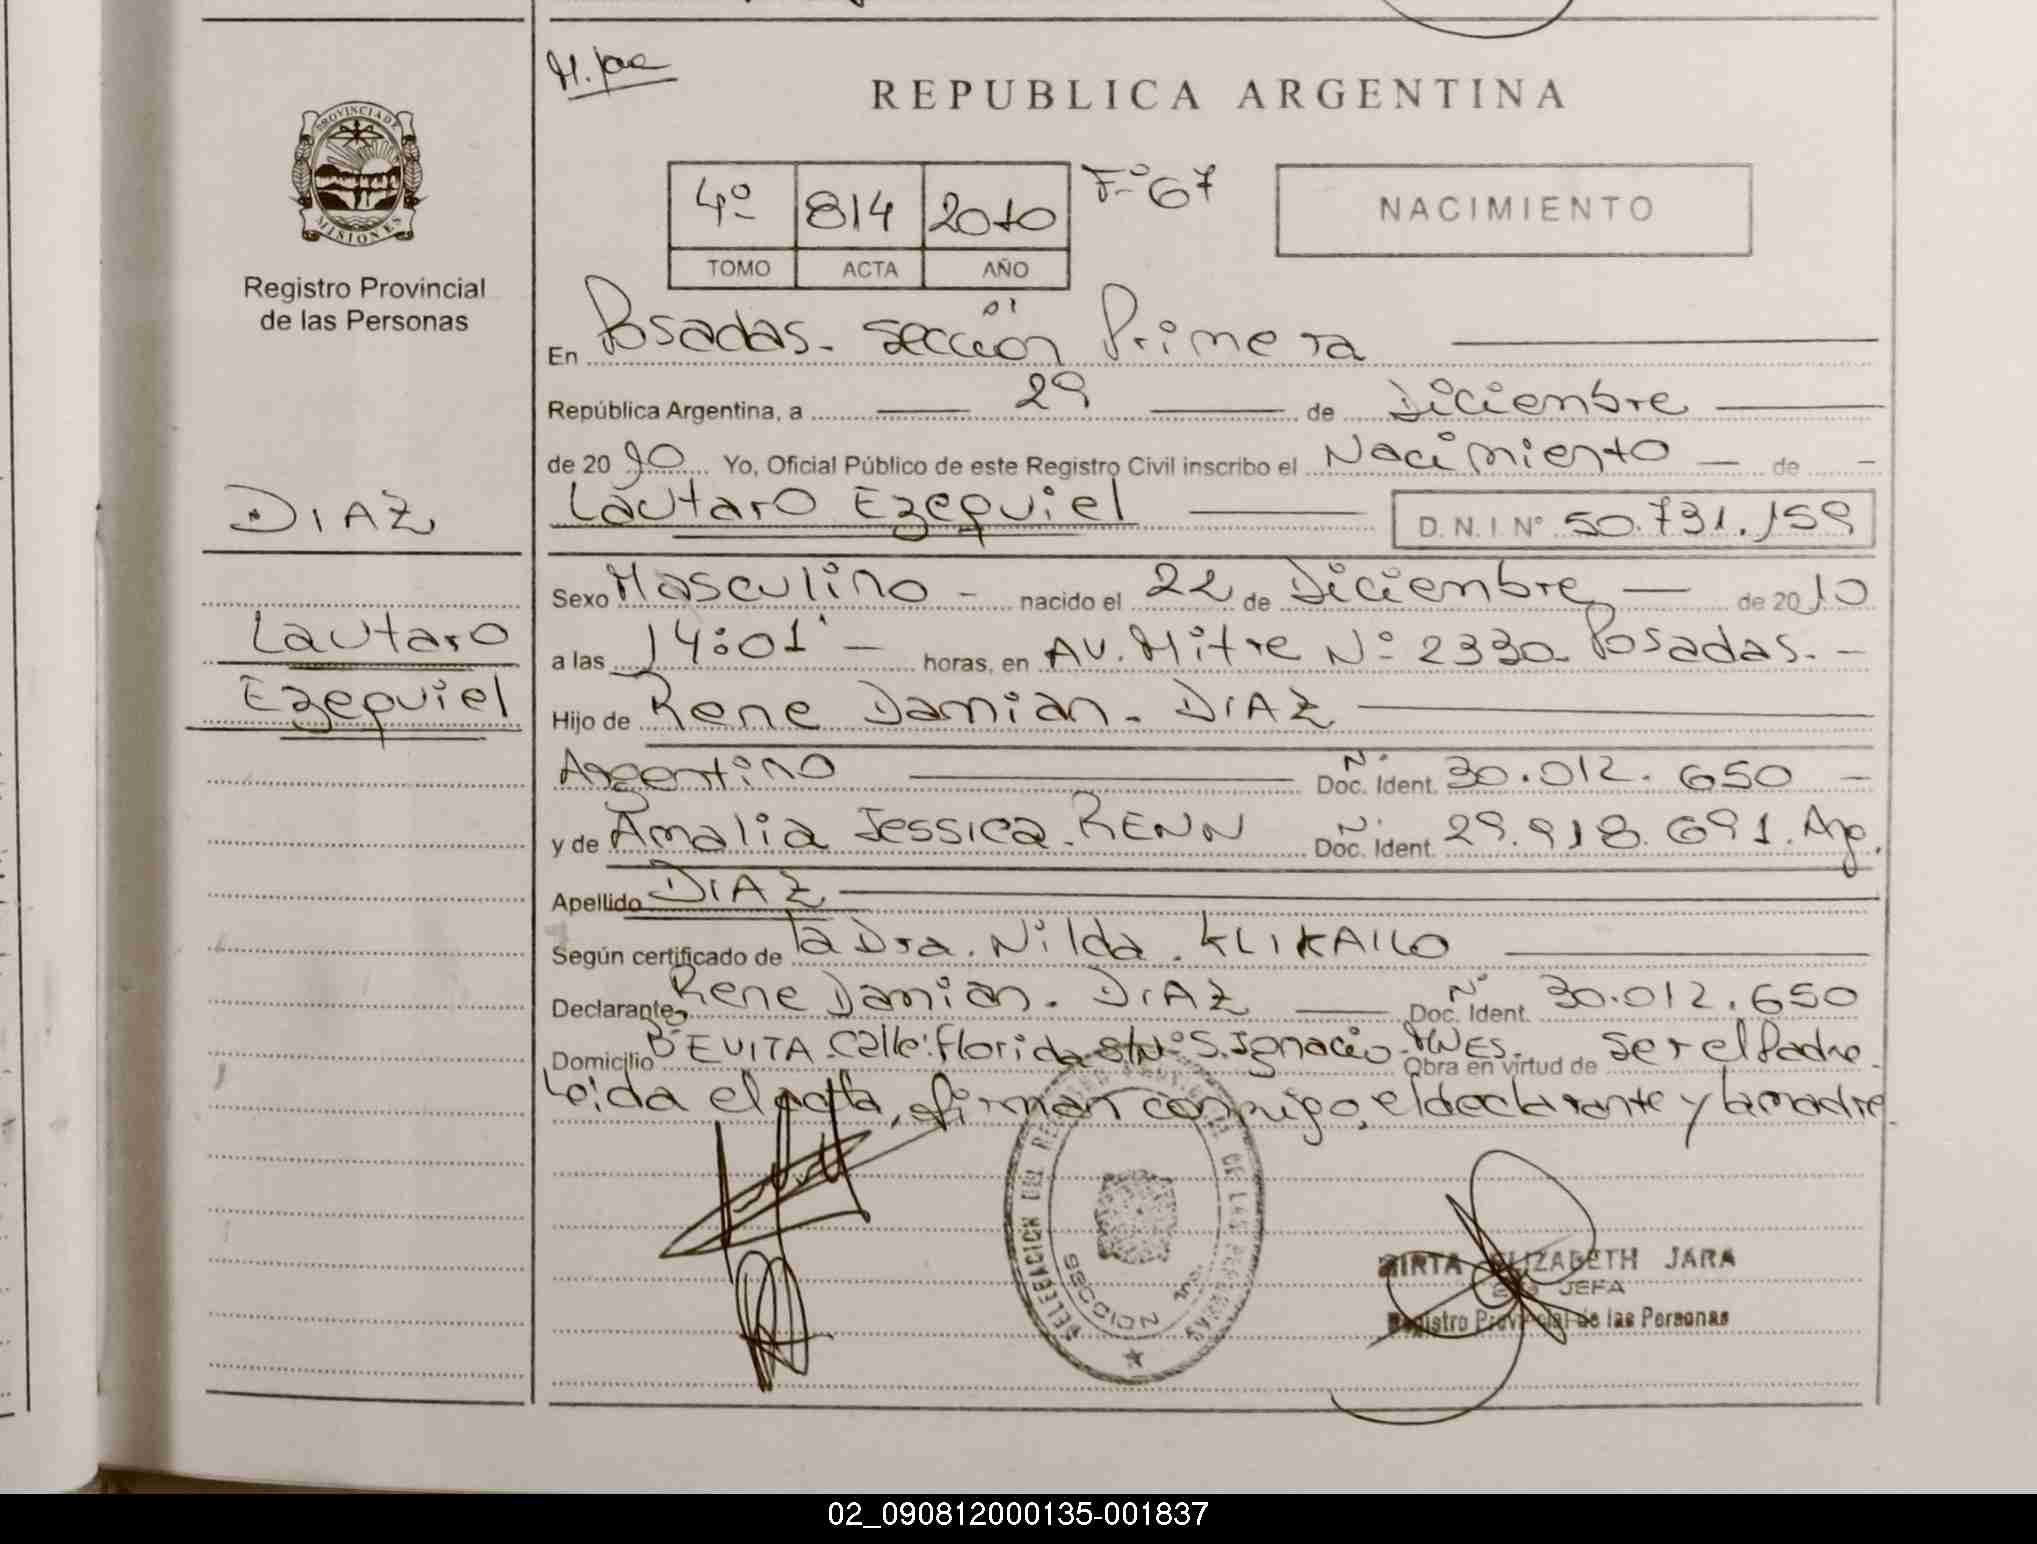 M. Jara
REPUBLICA ARGENTINA
PROVINCIA DE
MISIONES
Registro Provincial
de las Personas
4º 814 2010 Fº 67
TOMO ACTA AÑO
NACIMIENTO
En Posadas. sección Primera
República Argentina, a 29 de Diciembre
de 20 10 Yo, Oficial Público de este Registro Civil inscribo el Nacimiento de
DIAZ
Lautaro Ezequiel D.N.I. Nº 50.731.159
Lautaro
Ezequiel
Sexo Masculino - nacido el 22 de Diciembre de 2010
a las 14:01' - horas, en AV. Mitre Nº 2330. Posadas. -
Hijo de Rene Damian. DIAZ
Argentino Nº Doc. Ident. 30.012.650 -
y de Amalia Jessica. RENN Nº Doc. Ident. 29.918.691. Arg.
Apellido DIAZ
Según certificado de la Dra. Nilda. KLIKAILO
Declarante Rene Damian. DIAZ Nº Doc. Ident. 30.012.650
Domicilio Bº EVITA. Calle: Florida S/Nº S. Ignacio. MNES. Obra en virtud de Ser el Padre.
Leida el acta, firman conmigo, el declarante y la madre
DELEGACION DEL REGISTRO PROVINCIAL DE LAS PERSONAS
SECCION 1ra.
MIRTA ELIZABETH JARA
JEFA
Registro Provincial de las Personas
02_090812000135-001837